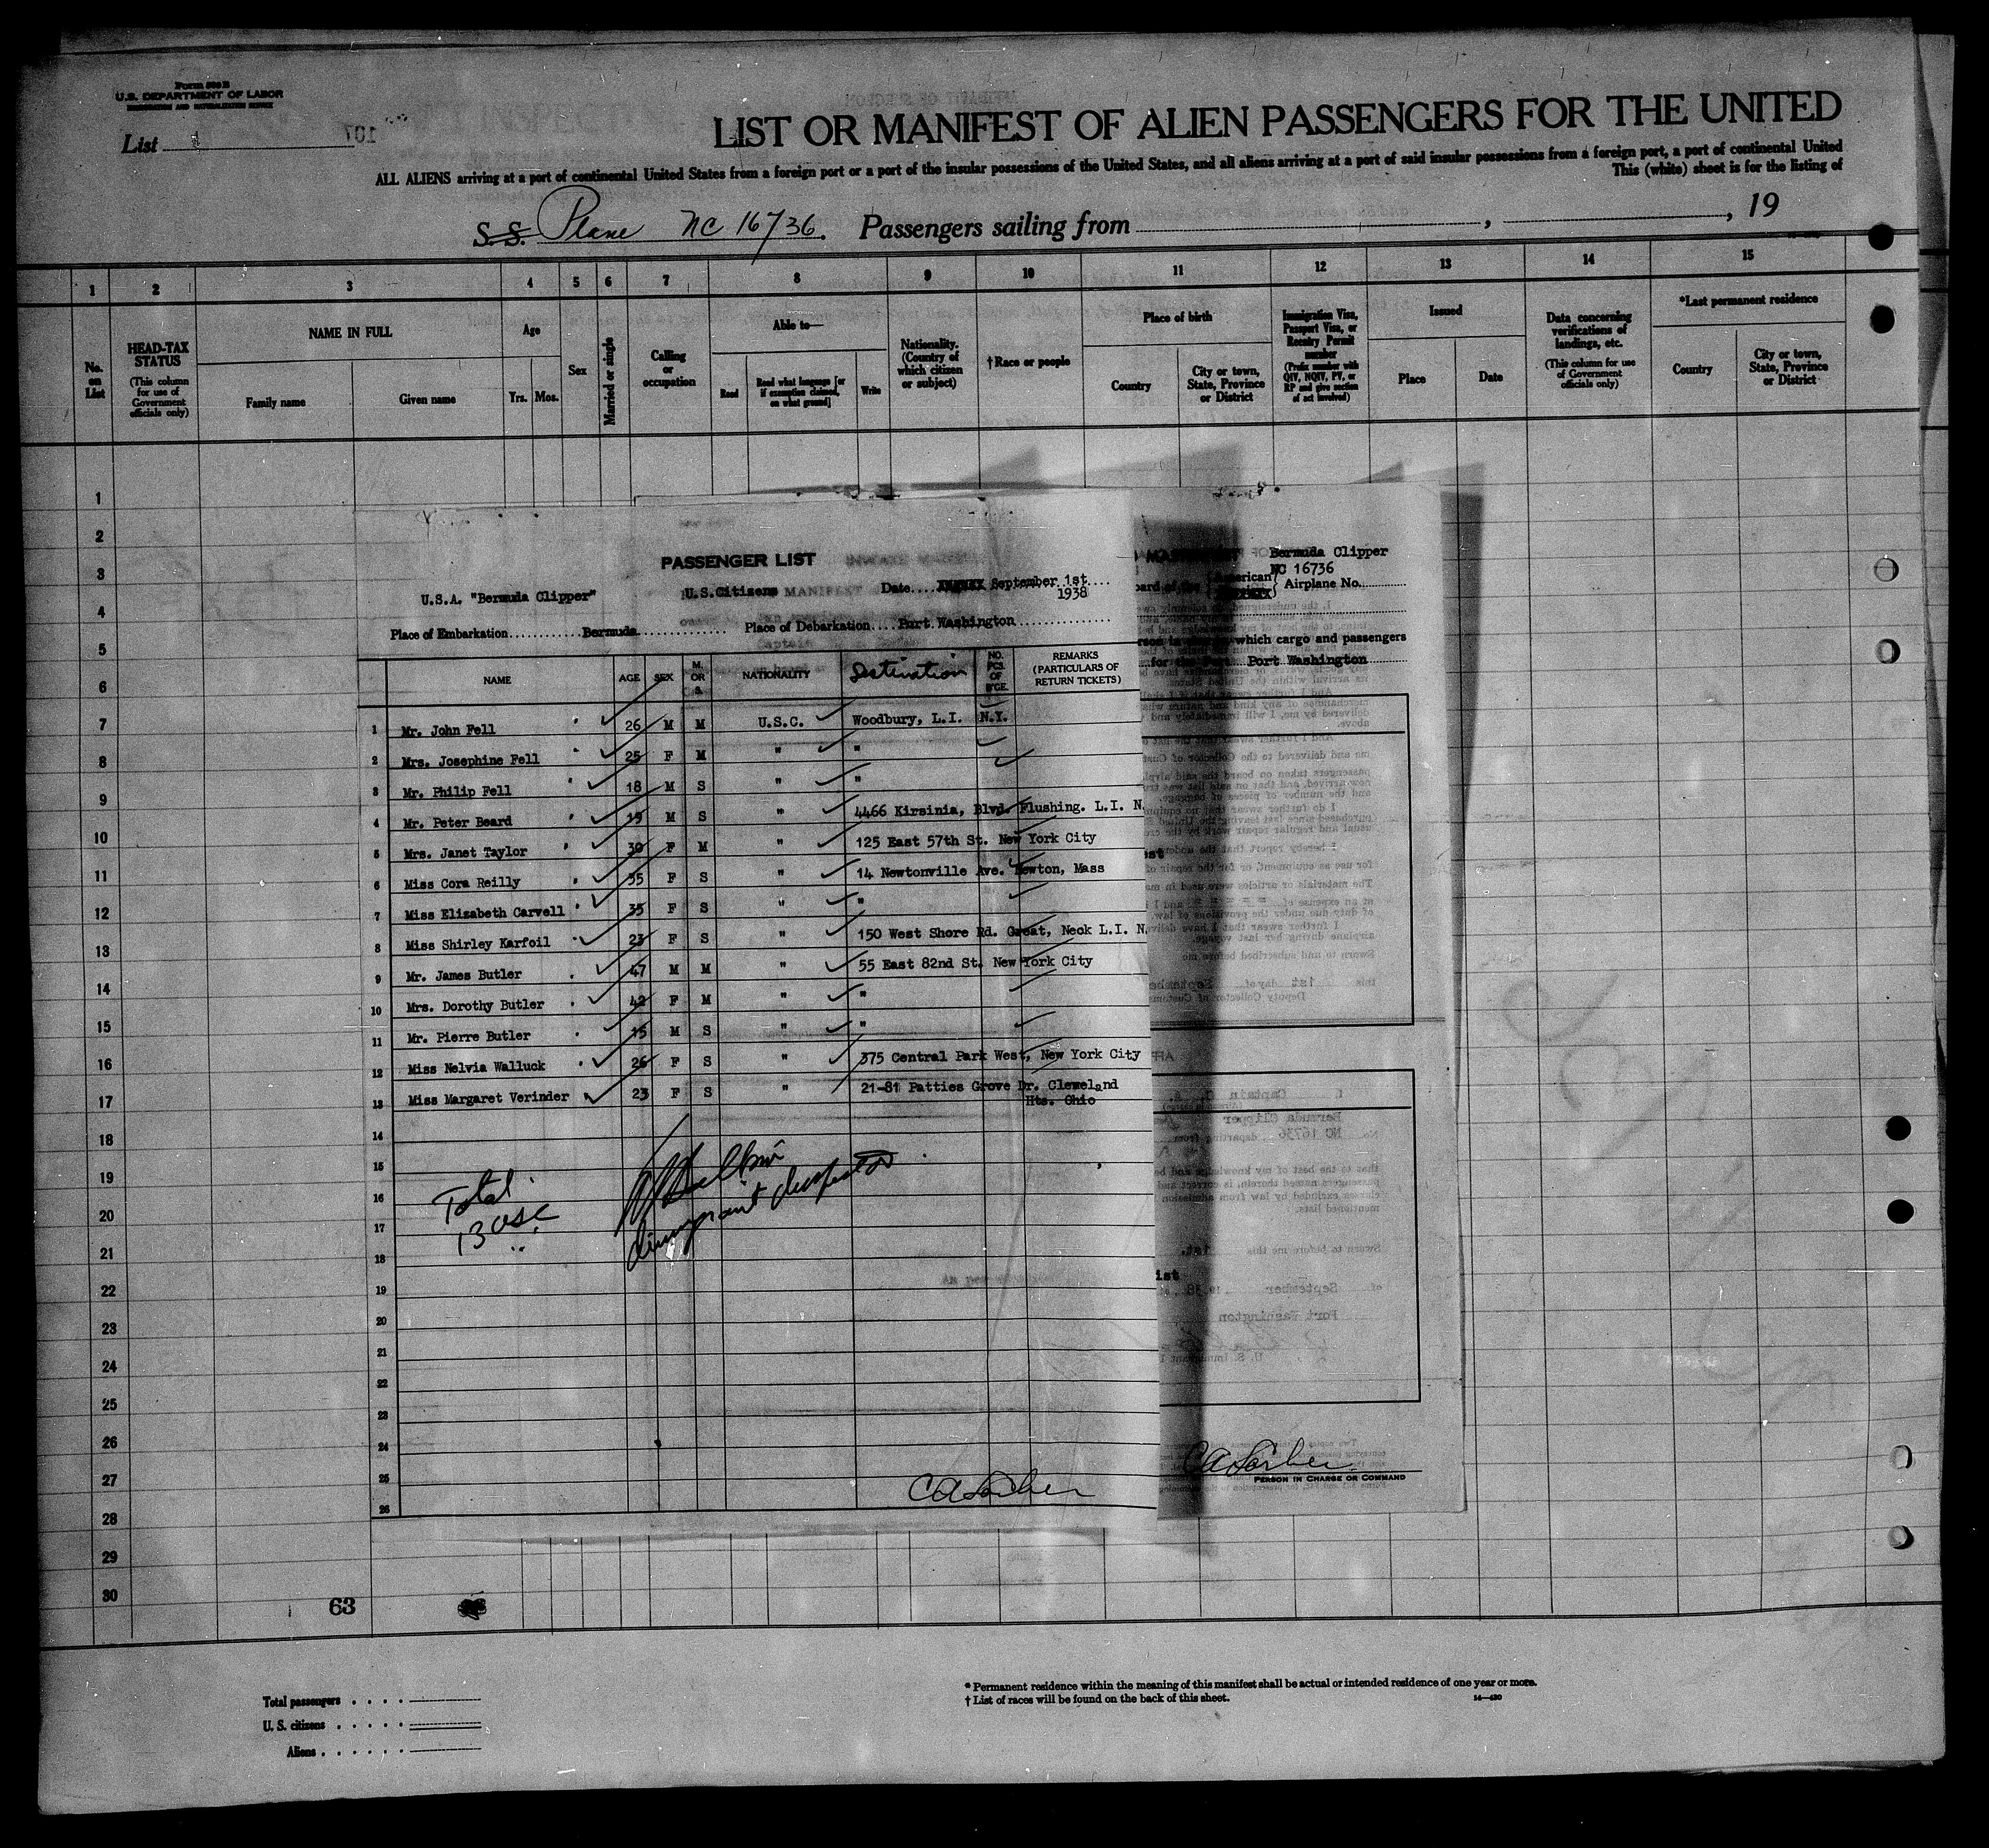 Form 500 B
U.S. DEPARTMENT OF LABOR
IMMIGRATION AND NATURALIZATION SERVICE
List
107
LIST OR MANIFEST OF ALIEN PASSENGERS FOR THE UNITED
ALL ALIENS arriving at a port of continental United States from a foreign port or a port of the insular possessions of the United States, and all aliens arriving at a port of said insular possessions from a foreign port, a port of continental United
This (white) sheet is for the listing of
S.S. Plane NC 16736. Passengers sailing from , , 19
1 2 3 4 5 6 7 8 9 10 11 12 13 14 15
No. on List
HEAD-TAX STATUS
(This column for use of Government officials only)
NAME IN FULL
Family name
Given name
Age
Yrs. Mos.
Sex
Married or single
Calling or occupation
Able to—
Read
Read what language [or if exemption claimed, on what ground]
Write
Nationality. (Country of which citizen or subject)
†Race or people
Place of birth
Country
City or town, State, Province or District
Immigration Visa, Passport Visa, or Reentry Permit number
(Prefix number with QIV, NQIV, PV, or RP and give section of act involved)
Issued
Place
Date
Data concerning verifications of landings, etc.
(This column for use of Government officials only)
*Last permanent residence
Country
City or town, State, Province or District
1
2
3
4
5
6
7
8
9
10
11
12
13
14
15
16
17
18
19
20
21
22
23
24
25
26
27
28
29
30
PASSENGER LIST
U.S.A. "Bermuda Clipper" U.S.Citizens Date.... September 1st....
1938
Place of Embarkation............Bermuda.............. Place of Debarkation....Port Washington................
NAME AGE SEX M. OR S. NATIONALITY Destination NO. PCS. OF B'GE. REMARKS (PARTICULARS OF RETURN TICKETS)
1 Mr. John Fell 26 M M U.S.C. Woodbury, L.I. N.Y.
2 Mrs. Josephine Fell 25 F M " "
3 Mr. Philip Fell 18 M S " "
4 Mr. Peter Beard 19 M S " 4466 Kirsinia, Blvd. Flushing. L.I. N.
5 Mrs. Janet Taylor 30 F M " 125 East 57th St. New York City
6 Miss Cora Reilly 35 F S " 14 Newtonville Ave. Newton, Mass
7 Miss Elizabeth Carvell 35 F S " "
8 Miss Shirley Karfoil 23 F S " 150 West Shore Rd. Great, Neck L.I. N.
9 Mr. James Butler 47 M M " 55 East 82nd St. New York City
10 Mrs. Dorothy Butler 42 F M " "
11 Mr. Pierre Butler 15 M S " "
12 Miss Nelvia Walluck 26 F S " 375 Central Park West, New York City
13 Miss Margaret Verinder 23 F S " 21-81 Patties Grove Dr. Cleveland
Hts. Ohio
14
15
16
17
18
19
20
21
22
23
24
25
26
Total
13 USC
Immigrant Inspector
Bermuda Clipper
NC 16736
American Airplane No.
which cargo and passengers
for the Port Port Washington
PERSON IN CHARGE OR COMMAND
63
Total passengers . . . .
U. S. citizens . . . . .
Aliens . . . . . .
* Permanent residence within the meaning of this manifest shall be actual or intended residence of one year or more.
† List of races will be found on the back of this sheet.
14—430